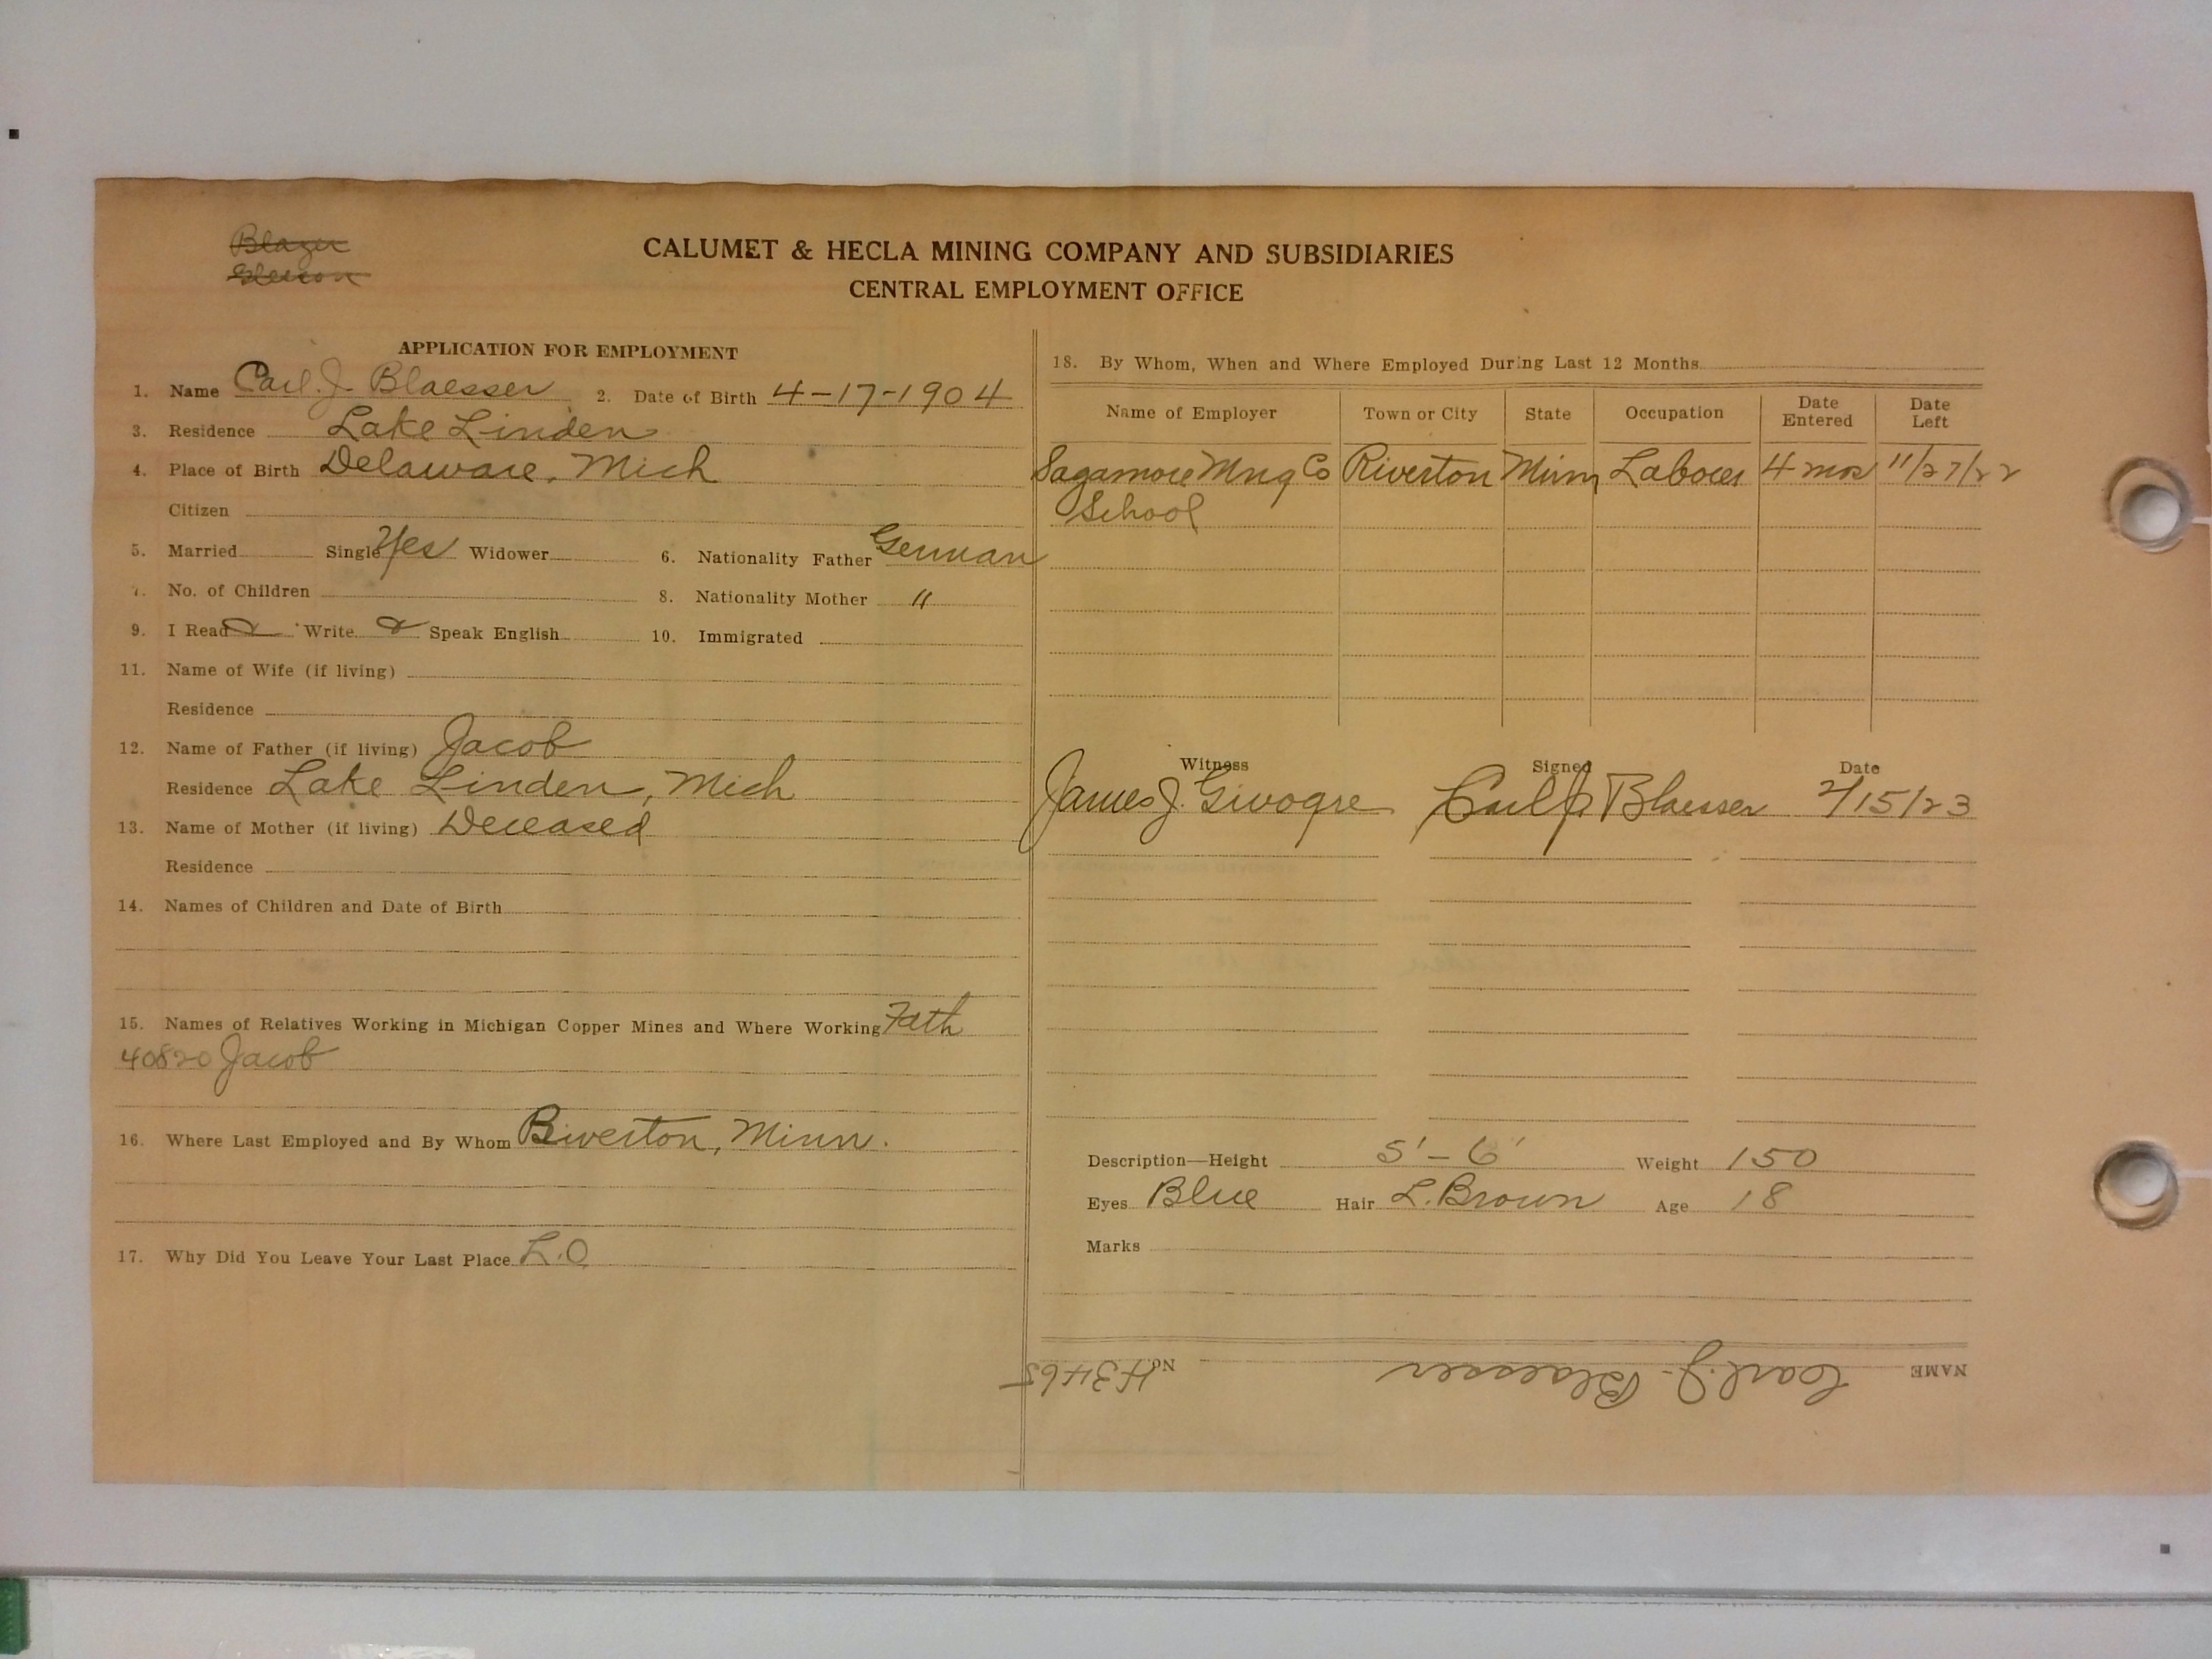 Blazer
CALUMET & HECLA MINING COMPANY AND SUBSIDIARIES
CENTRAL EMPLOYMENT OFFICE
APPLICATION FOR EMPLOYMENT
1. Name Carl. J. Blaesser 2. Date of Birth 4-17-1904
3. Residence Lake Linden
4. Place of Birth Delaware, Mich
Citizen
5. Married Single Yes Widower 6. Nationality Father German
7. No. of Children 8. Nationality Mother "
9. I Read & Write & Speak English 10. Immigrated
11. Name of Wife (if living)
Residence
12. Name of Father (if living) Jacob
Residence Lake Linden, Mich
13. Name of Mother (if living) Deceased
Residence
14. Names of Children and Date of Birth
15. Names of Relatives Working in Michigan Copper Mines and Where Working Fath
40820 Jacob
16. Where Last Employed and By Whom Riverton, Minn.
17. Why Did You Leave Your Last Place L.O.
18. By Whom, When and Where Employed During Last 12 Months
Name of Employer Town or City State Occupation Date Entered Date Left
Sagamore Mng Co Riverton Minn Laborer 4 mos 11/27/22
School
Witness Signed Date
James J. Givogre Carl J. Blaesser 2/15/23
Description—Height 5'-6' Weight 150
Eyes Blue Hair L. Brown Age 18
Marks
NAME Carl. J. Blaesser No. H31465